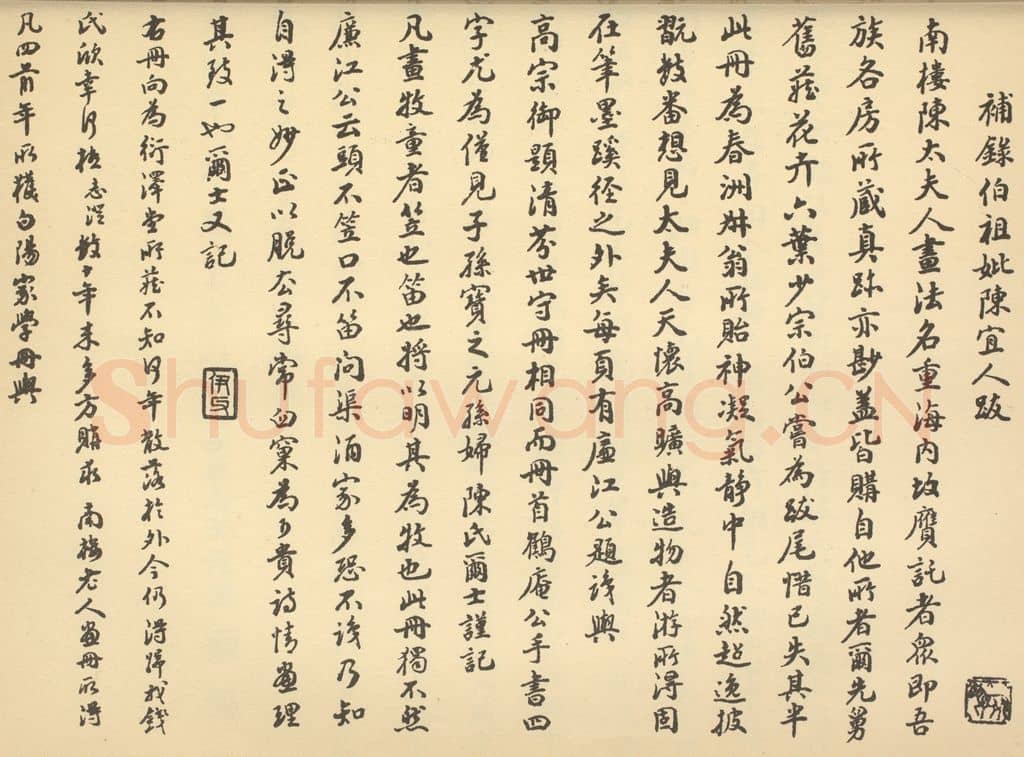 補錄伯祖妣陳宜人跋
南樓陳太夫人畫法名重海內故贗託者衆即吾
族各房所藏真跡亦尠蓋皆購自他所者爾先舅
舊藏花卉六葉少宗伯公嘗為跋尾惜已失其半
此冊為春洲叔翁所貽神凝氣靜中自然超逸披
翫數番想見太夫人天懷高曠與造物者游所得固
在筆墨蹊徑之外矣每頁有廉江公題識與
高宗御題清芬世守冊相同而冊首鶴庵公手書四
字尤為僅見子孫寶之元孫婦陳氏爾士謹記
凡畫牧童者笠也笛也將以明其為牧也此冊獨不然
廉江公云頭不笠口不笛問渠酒家多恐不識乃知
自得之妙正以脫公尋常面窠為可貴詩情畫理
其致一也爾士又記
右冊向為衍澤堂所藏不知何年散落於外今仍得歸我錢
氏欣幸何極志澄數十年來多方購求南樓老人畫冊所得
凡四前年所獲白陽家學冊與
Shufawang.CN